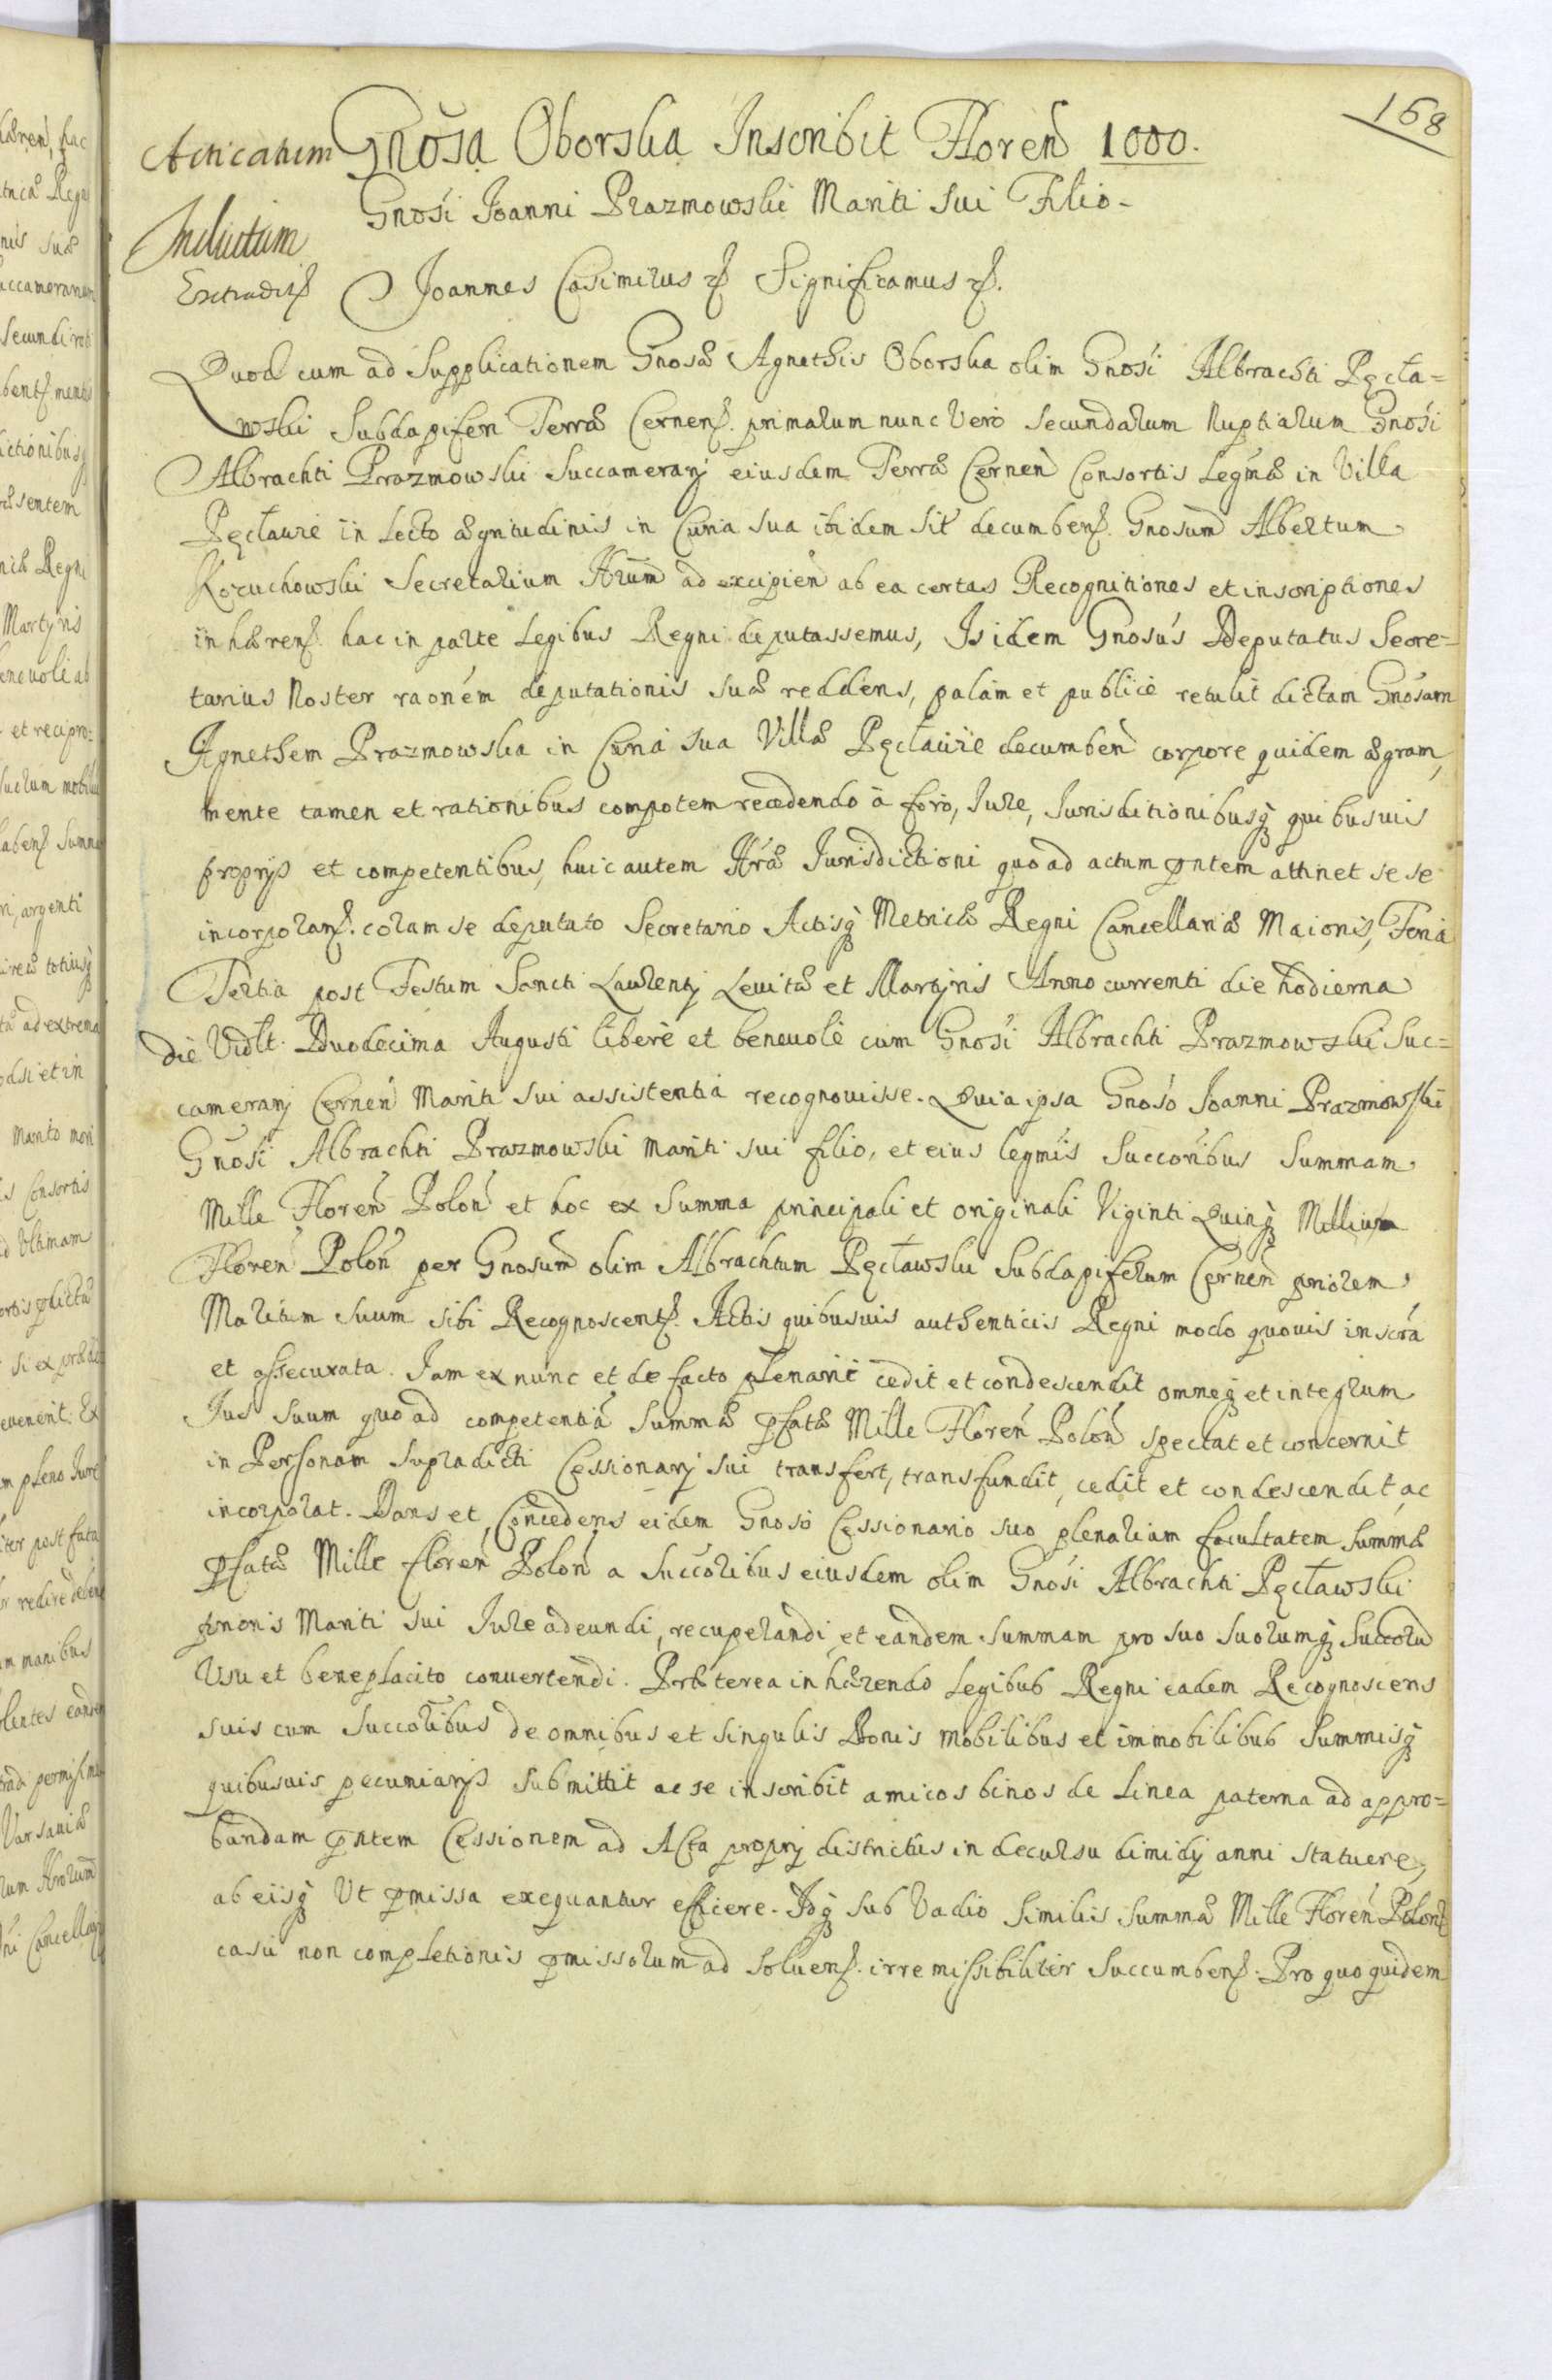 168
Acticatum Gnosa Oborska Inscribit Floren 1000.
Gnosi Joanni Prazmowski Mariti sui Filio.
Inductum
Extradit Joannes Casimirus etc Significamus etc.
Quod cum ad Supplicationem Gnosæ Agnethis Oborska olim Gnosi Albrachti Pęcła=
wski Subdapiferi Terræ Cernens. primarum nunc vero secundarum Nuptiarum Gnosi
Albrachti Prazmowski Succamerarij eiusdem Terræ Cernen Consortis Legmæ in Villa
Pęcławie in Lecto ægritudinis in Curia sua ibidem sit decumbens. Gnosum Albertum
Kozuchowski Secretarium Nrum ad excipien ab ea certas Recognitiones et inscriptiones
inhærens. hac in parte Legibus Regni deputassemus, Is idem Gnosus Deputatus Secre=
tarius Noster raonem deputationis suæ reddens, palam et publice retulit dictam Gnosam
Agnethem Prazmowska in Curia sua Villæ Pęcławie decumben corpore quidem ægram,
mente tamen et rationibus compotem recedendo a foro, Iure, Iurisditionibusq quibusuis
proprijs et competentibus, huic autem Nræ Iurisdictioni quo ad actum pntem attinet se se
incorporans. coram se deputato Secretario Actisq Metricæ Regni Cancellariæ Maioris, Feria
Tertia post Festum Sancti Laurentij Leuitæ et Martyris Anno currenti die hodierna
die Vidlt. Duodecima Augusti libere et beneuole cum Gnosi Albrachti Prazmowski Suc=
camerarij Cernen Mariti sui assistentia recognouisse. Quia ipsa Gnoso Joanni Prazmowski
Gnosi Albrachti Prazmowski Mariti sui filio, et eius legmis Succoribus Summam
Mille Floren Polon et hoc ex Summa principali et originali Viginti Quinq Millium
Floren Polon per Gnosum olim Albrachtum Pęcławski Subdapiferum Cernen priorem
Maritum suum sibi Recognoscents. Actis quibusuis authenticis Regni modo quouis inscra
et assecurata. Iam ex nunc et de facto plenarie cedit et condescendit omneq et integrum
Jus suum quo ad competentiã Summæ pfatæ Mille Floren Polon spectat et concernit
in Personam supradicti Cessionarij sui transfert, transfundit, cedit et condescendit, ac
incorporat. Dans et Concedens eidem Gnoso Cessionario suo plenariam facultatem Summæ
pfatæ Mille floren Polon a Succoribus eiusdem olim Gnosi Albrachti Pęcławski
prioris Mariti sui Iure adeundi, recuperandi et eandem summam pro suo suorumq Succorũ
Usu et beneplacito conuertendi. Præterea inhærendo Legibus Regni eadem Recognoscens
suis cum Succoribus de omnibus et singulis Bonis mobilibus et immobilibus Summisq
quibusuis pecuniarijs submittit ac se inscribit amicos binos de Linea paterna ad appro=
bandam pntem Cessionem ad Acta proprij districtus in decursu dimidij anni statuere,
ab eiisq Ut pmissa exequantur efficere. Idq sub Vadio similis Summæ Mille Floren Polon
casu non completionis pmissorum ad soluens. irremissibiliter succumbens. Pro quo quidem